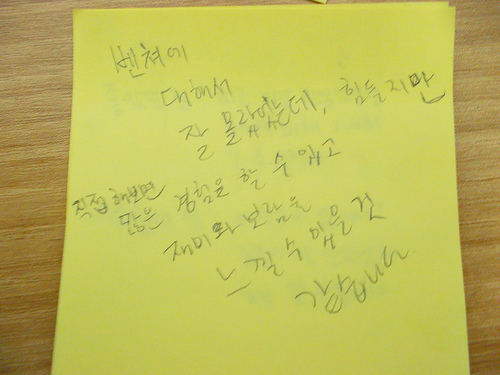 벤쳐에
대해서
잘 몰랐었는데, 힘들지만
직접 해보면
많은 경험을 할 수 있고
재미와 보람을
느낄 수 있을 것
같습니다.